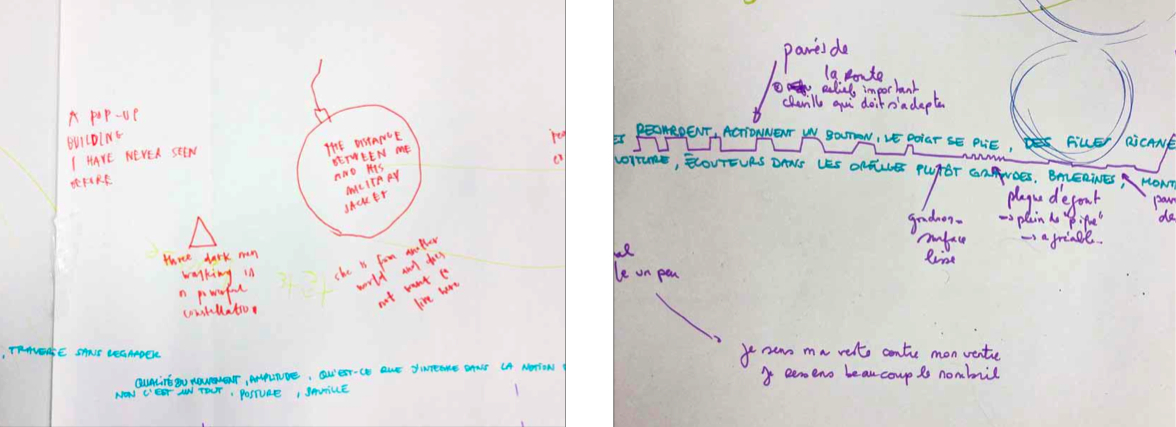 A POP-UP
BUILDING
I HAVE NEVER SEEN
BEFORE
THE DISTANCE
BETWEEN ME
AND HIS
MILITARY
JACKET
three dark men
walking in
a powerful
constellation
she is from another
world and does
not want to
live here
, TRAVERSE SANS REGARDER
QUALITÉ DU MOUVEMENT, AMPLITUDE, QU'EST-CE QUE J'INTEGRE DANS LA NOTION
NON C'EST UN TOUT. POSTURE,
pavés de
la route
relief important
cheville qui doit s'adapter
REGARDENT, ACTIONNENT UN BOUTON, LE DOIGT SE PLIE, DES FILLES RICANE
VOITURE, ÉCOUTEURS DANS LES OREILLES PLUTÔT GRANDES. BALERINES, MONT
plaque d'égout
→ plein de
→ agréable
surface
lisse
un peu
je sens ma veste contre mon ventre
je ressens beaucoup le nombril